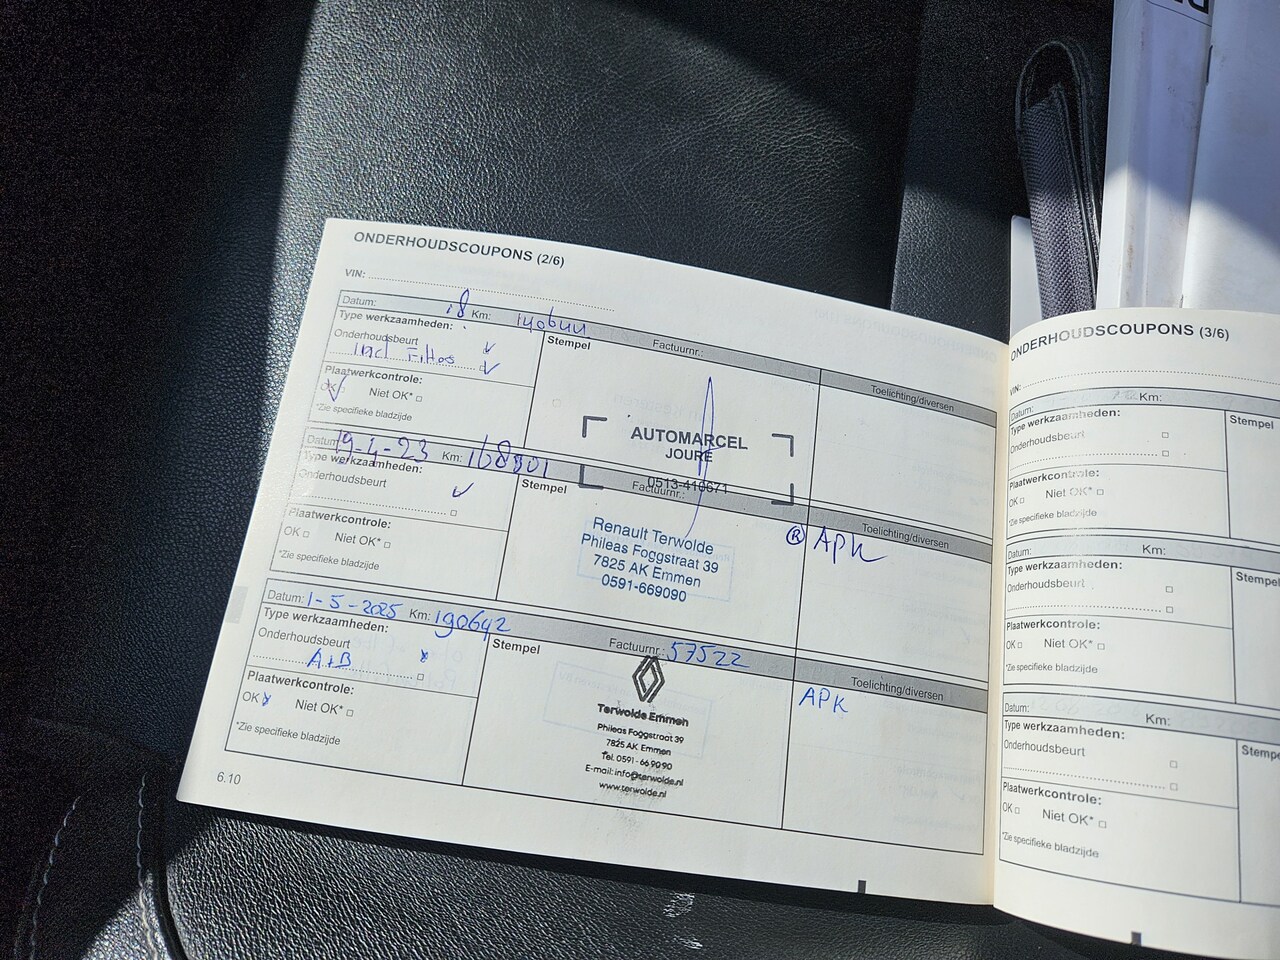 ONDERHOUDSCOUPONS (2/6)
VIN:
Datum: Km:
Factuurnr.:
Type werkzaamheden:
Onderhoudsbeurt
Incl
Plaatwerkcontrole:
OK Niet OK*
*Zie specifieke bladzijde
Stempel
AUTOMARCEL
JOURE
0513-410671
Toelichting/diversen
Datum: 19-4-23 Km: 168901
Factuurnr.:
Type werkzaamheden:
Onderhoudsbeurt
Plaatwerkcontrole:
OK Niet OK*
*Zie specifieke bladzijde
Stempel
Renault Terwolde
Phileas Foggstraat 39
7825 AK Emmen
0591-669090
Toelichting/diversen
® Apk
Datum: 1-5-2025 Km: 190642
Factuurnr.: 57522
Type werkzaamheden:
Onderhoudsbeurt
A+B
Plaatwerkcontrole:
OK Niet OK*
*Zie specifieke bladzijde
Stempel
Terwolde Emmen
Phileas Foggstraat 39
7825 AK Emmen
Tel. 0591-669090
E-mail: info@terwolde.nl
www.terwolde.nl
Toelichting/diversen
APK
6.10
ONDERHOUDSCOUPONS (3/6)
VIN:
Datum: Km:
Type werkzaamheden:
Onderhoudsbeurt
Plaatwerkcontrole:
OK Niet OK*
*Zie specifieke bladzijde
Stempel
Datum: Km:
Type werkzaamheden:
Onderhoudsbeurt
Plaatwerkcontrole:
OK Niet OK*
*Zie specifieke bladzijde
Stempel
Datum: Km:
Type werkzaamheden:
Onderhoudsbeurt
Plaatwerkcontrole:
OK Niet OK*
*Zie specifieke bladzijde